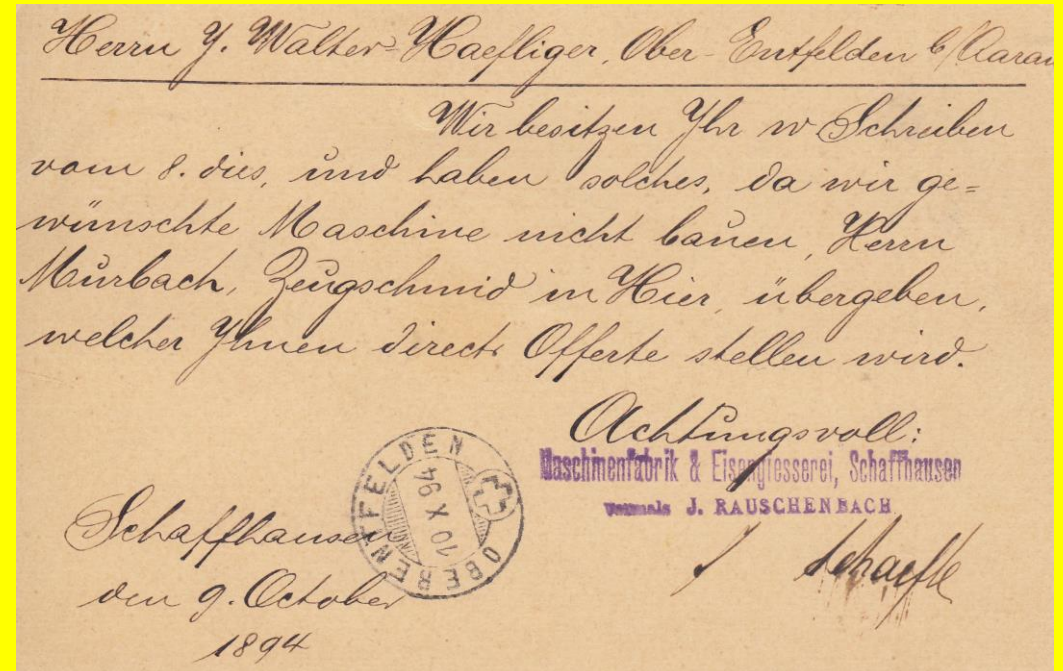 Herrn J. Walter-Haefliger, Ober-Entfelden b/Aarau
Wir besitzen Ihr w Schreiben
vom 8. dies, und haben solches, da wir ge=
wünschte Maschine nicht bauen, Herrn
Murbach, Zeugschmid in Hier, übergeben,
welcher Ihnen direct Offerte stellen wird.
Achtungsvoll:
Maschinenfabrik & Eisengiesserei, Schaffhausen
Vormals J. RAUSCHENBACH
OBERENTFELDEN
10 X 94
Schaffhausen
den 9. October
1894